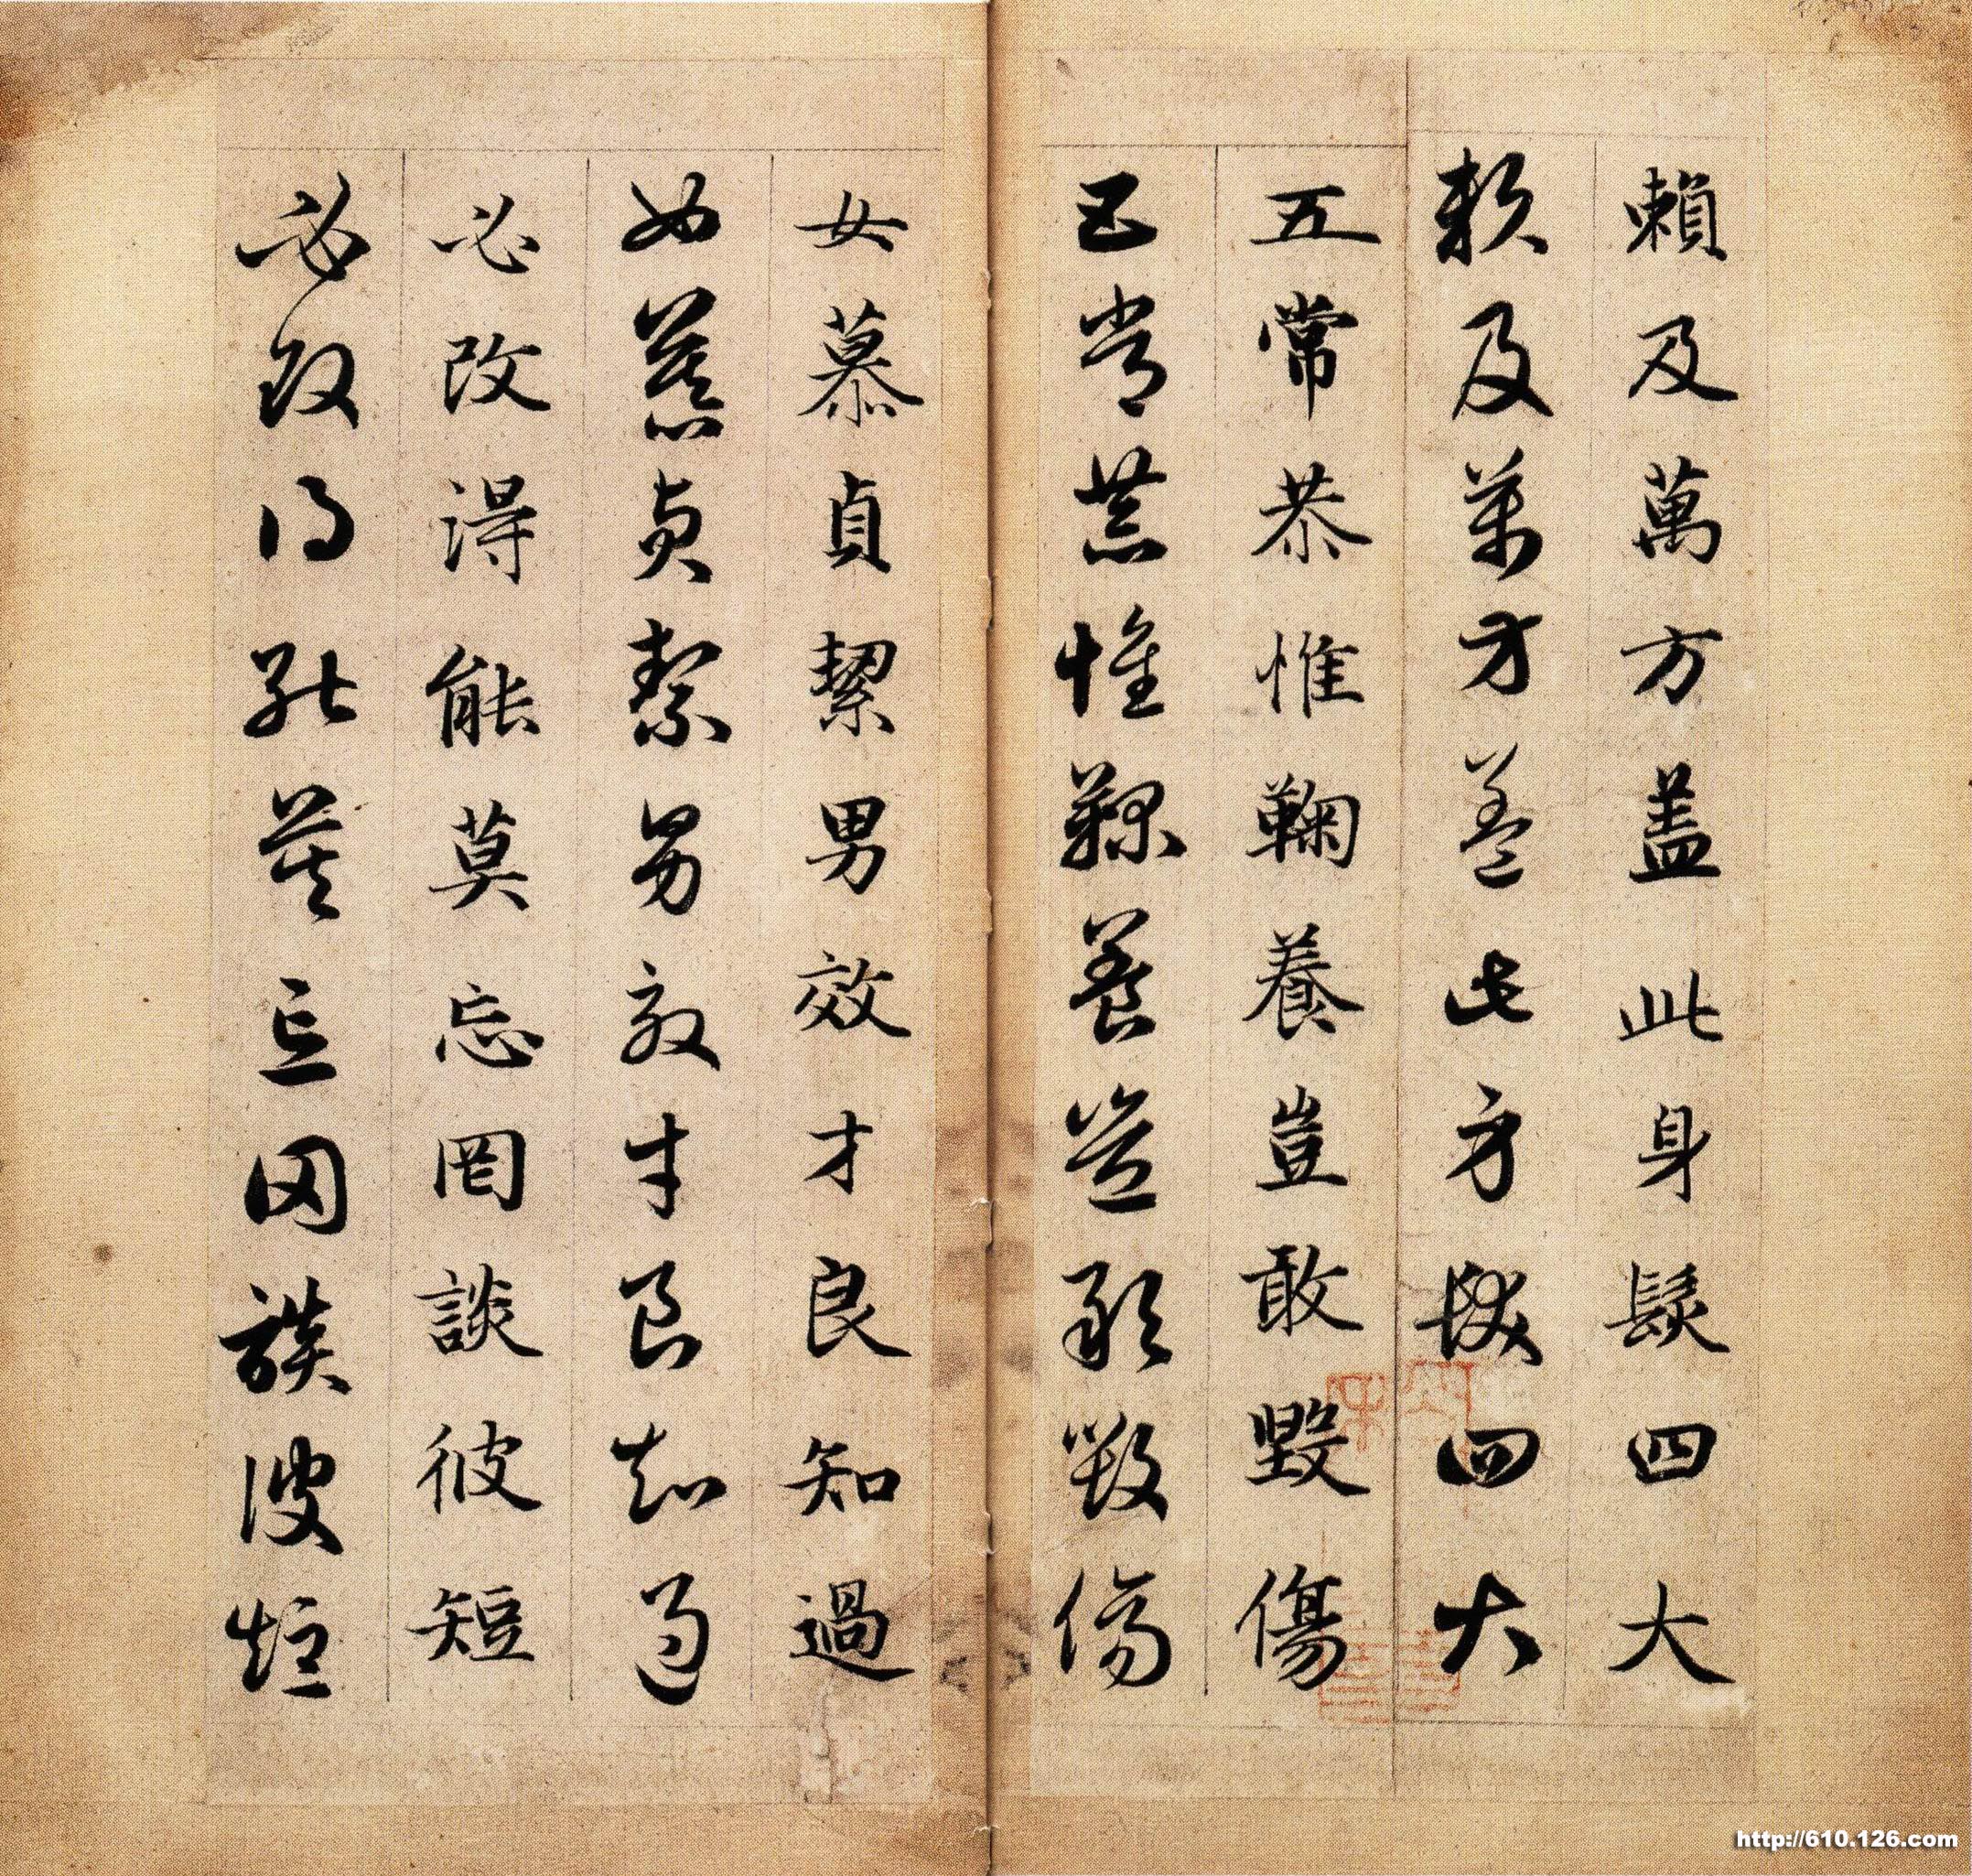 賴及萬方蓋此身髮四大
賴及萬方蓋此身髮四大
五常恭惟鞠養豈敢毀傷
五常恭惟鞠養豈敢毀傷
女慕貞絜男效才良知過
女慕貞絜男效才良知過
必改得能莫忘罔談彼短
必改得能莫忘罔談彼短
http://610.126.com